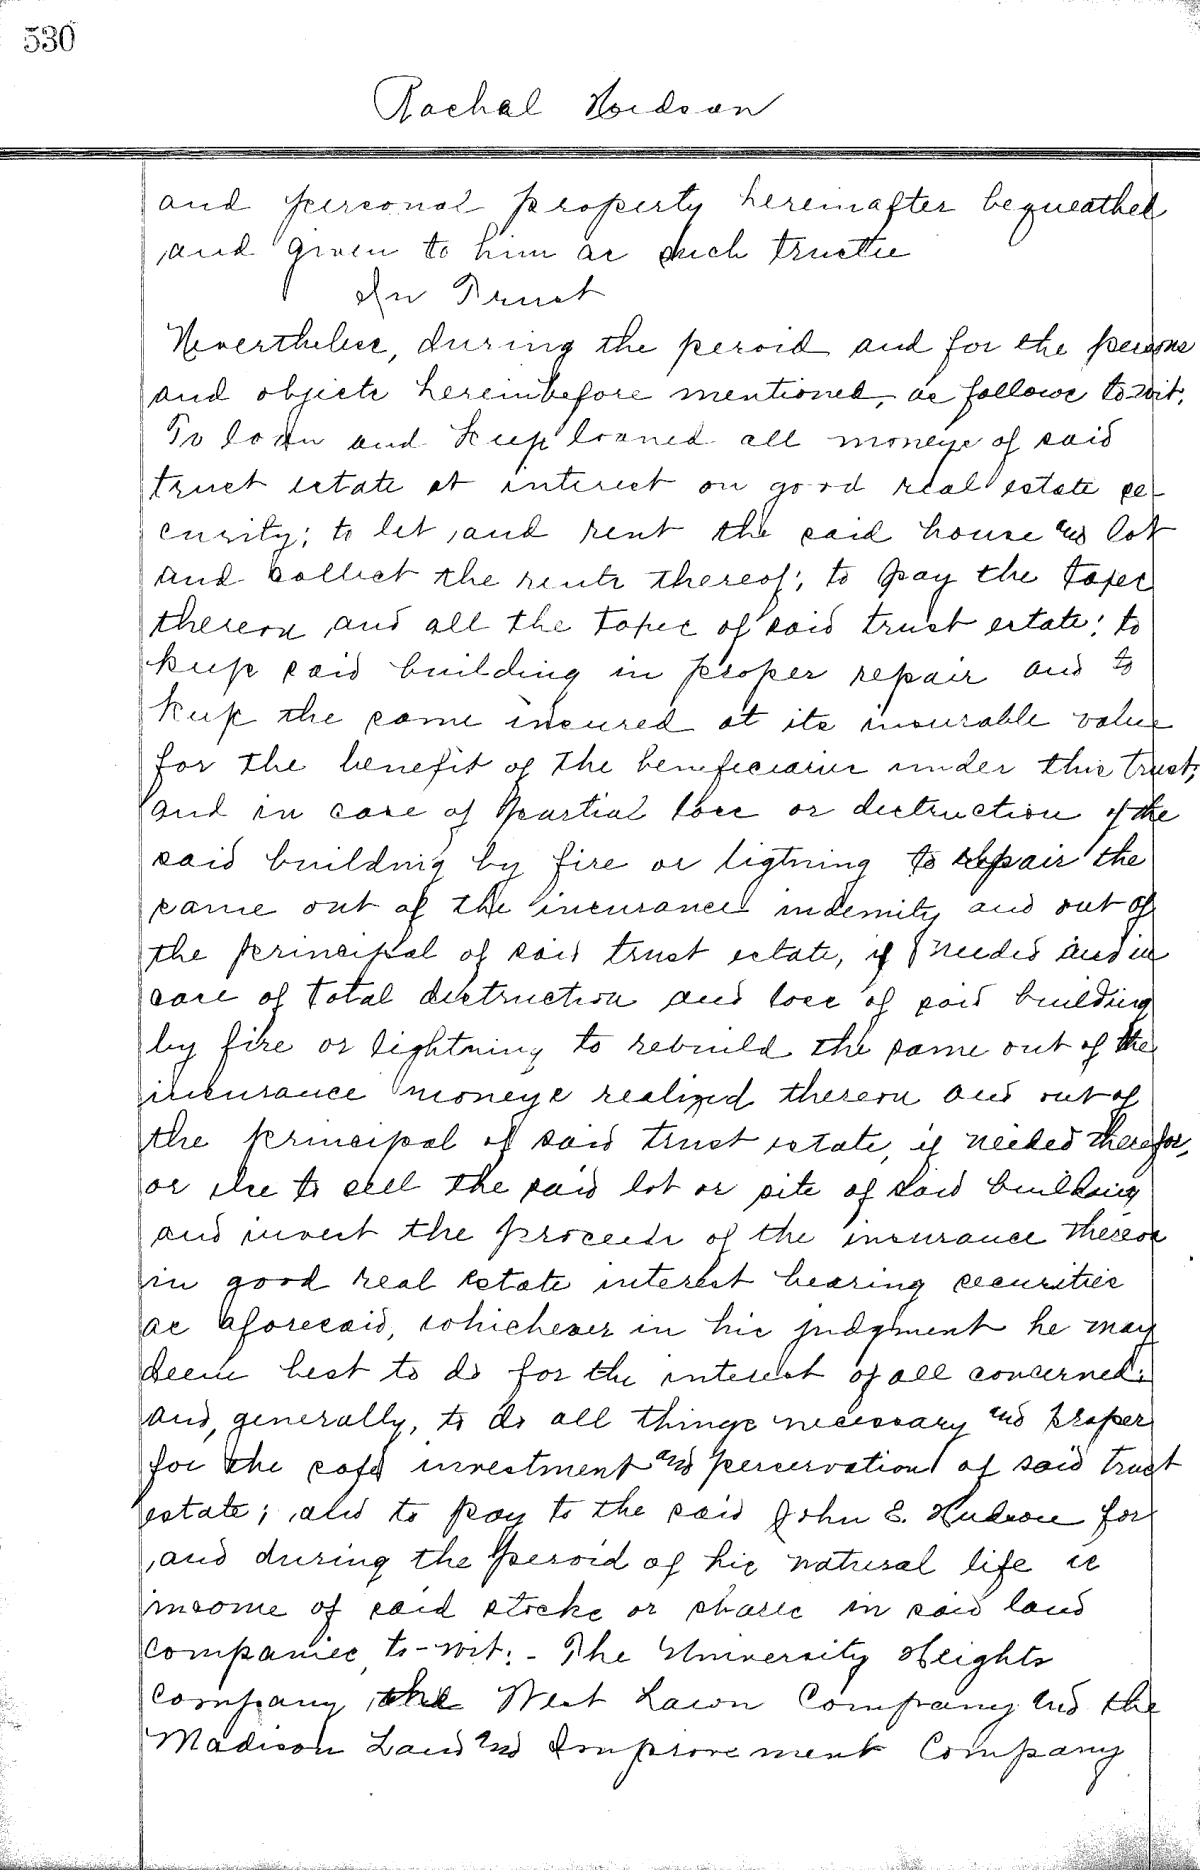 530
Rachal Hudson
and personal property hereinafter bequeathed
and given to him as such trustee
In Trust
Nevertheless, during the peroid and for the persons
and objects hereinbefore mentioned, as follows to-wit,
To loan and keep loaned all moneys of said
trust estate at interest on good real estate se-
curity; to let and rent the said house and lot
and collect the rents thereof; to pay the taxes
thereon and all the taxes of said trust estate; to
keep said building in proper repair and to
keep the same insured at its insurable value
for the benefit of the beneficiaries under this trust;
and in case of partial loss or destruction of the
said building by fire or ligtning to repair the
same out of the insurance indemity and out of
the principal of said trust estate, if needed and in
case of total destruction and loss of said building
by fire or lightning to rebuild the same out of the
insurance moneys realized thereon and out of
the principal of said trust estate, if needed therefor,
or else to sell the said lot or site of said building
and invest the proceeds of the insurance thereon
in good real estate interest bearing securities
as aforesaid, whichever in his judgment he may
deem best to do for the interest of all concerned;
and, generally, to do all things necessary and proper
for the safe investment and perservation of said trust
estate; also to pay to the said John E. Hudson for
and during the peroid of his natural life
income of said stocks or shares in said land
companies, to-wit: - The University Heights
Company, the West Lawn Company and the
Madison Land and Improvement Company